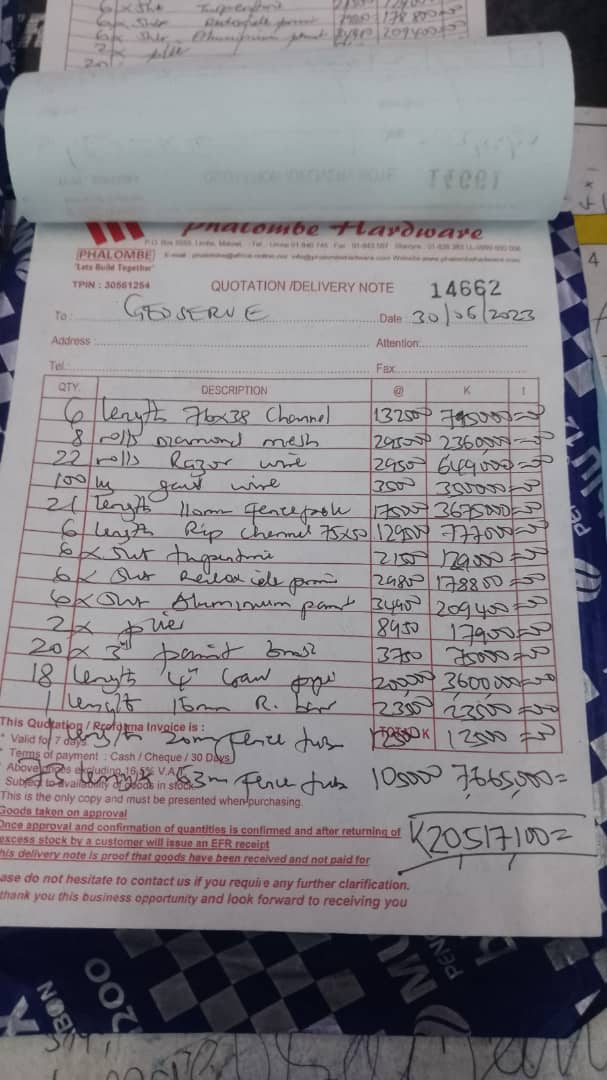 6 x 5ltr Turpentine
6x 5ltr 178800
6x 5ltr Aluminium paint 209400
2x plie
Phalombe Hardware
P.O. Box 5559, Limbe, Malawi.
PHALOMBE
'Lets Build Together'
TPIN : 30561254
QUOTATION /DELIVERY NOTE 14662
To : GEOSERVE Date 30/06/2023
Address : Attention:
Tel : Fax
QTY. DESCRIPTION @ K t
6 length 76x38 Channel 132500 795000=00
8 rolls Diamond mesh 295000 2360000=00
22 rolls Razor wire 29500 649000=00
100 kg galv wire 3500 350000=00
21 length 110mm Fence pole 175000 3675000=00
6 length Rip Channel 75x50 129500 777000=00
6 x 5ltr turpentine 21500 129000=00
6 x 5ltr Red oxide 29800 178800=00
6 x 5ltr Aluminium paint 34900 209400=00
2 x plier 8950 17900=00
20 x 3" paint brush 3750 75000=00
18 length 4" pipe 200000 3600000=00
1 length 16mm R. bar 23000 23000=00
This Quotation / Proforma Invoice is :
1 length 20mm fence tube 12500 12500=00
TOTAL K
* Valid for 7 days.
* Terms of payment : Cash / Cheque / 30 Days
* Above prices excluding 16.5% V.A.T
73 length 63mm fence tube 105000 7665000=
Subject to availability of goods in stock
This is the only copy and must be presented when purchasing.
Goods taken on approval
Once approval and confirmation of quantities is confirmed and after returning of
excess stock by a customer will issue an EFR receipt
his delivery note is proof that goods have been received and not paid for
K20517100=
ase do not hesitate to contact us if you require any further clarification.
thank you this business opportunity and look forward to receiving you